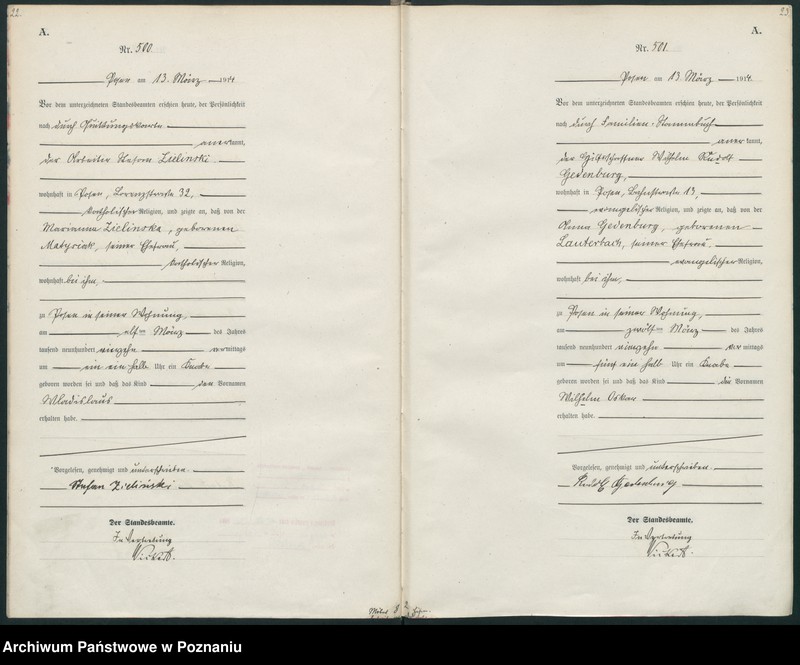 22
A.
Nr. 500
Posen am 13. März 1914
Vor dem unterzeichneten Standesbeamten erschien heute, der Persönlichkeit
nach durch Quittungskarte
anerkannt,
der Arbeiter Stefan Zielinski
wohnhaft in Posen, Lorenzstraße 32,
katholischer Religion, und zeigte an, daß von der
Marianna Zielinska, geborenen
seiner Ehefrau,
katholischer Religion,
wohnhaft bei ihm,
zu Posen in seiner Wohnung,
am elften März des Jahres
tausend neunhundert vormittags
um ein ein halb Uhr ein Knabe
geboren worden sei und daß das Kind den Vornamen
Wladislaus
erhalten habe.
Vorgelesen, genehmigt und unterschrieben.
Stefan Zieliński
Der Standesbeamte.
In Vertretung
23
A.
Nr. 501
Posen am 13. März 1914
Vor dem unterzeichneten Standesbeamten erschien heute, der Persönlichkeit
nach durch Familien-Stammbuch
anerkannt,
der Wilhelm Rudolf
Gedenburg,
wohnhaft in Posen, Bahnstraße 13,
evangelischer Religion, und zeigte an, daß von der
Anna Gedenburg, geborenen
Lauterbach, seiner Ehefrau,
evangelischer Religion,
wohnhaft bei ihm,
zu Posen in seiner Wohnung,
am zwölften März des Jahres
tausend neunhundert vormittags
um fünf ein halb Uhr ein Knabe
geboren worden sei und daß das Kind die Vornamen
Wilhelm Oskar
erhalten habe.
Vorgelesen, genehmigt und unterschrieben.
Rudolf Gedenburg
Der Standesbeamte.
In Vertretung
Archiwum Państwowe w Poznaniu